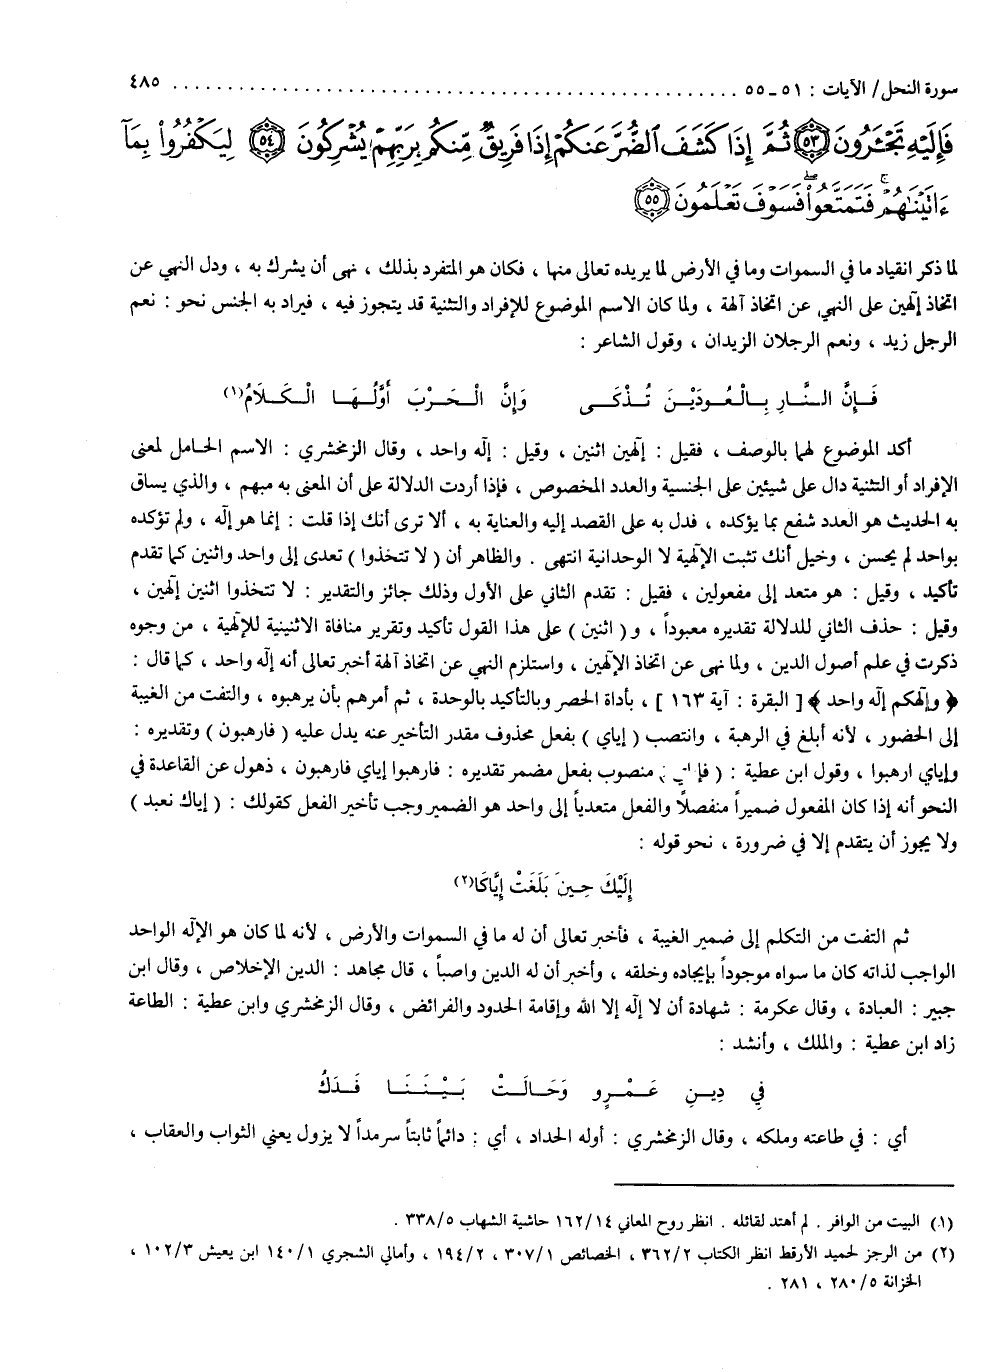 سورة النحل/ الآيات : ٥١ ـ ٥٥ ........................................................ ٤٨٥
فَإِلَيْهِ تَجْـَٔرُونَ ﴿٥٣﴾ ثُمَّ إِذَا كَشَفَ ٱلضُّرَّ عَنكُمْ إِذَا فَرِيقٌ مِّنكُم بِرَبِّهِمْ يُشْرِكُونَ ﴿٥٤﴾ لِيَكْفُرُوا۟ بِمَآ
ءَاتَيْنَـٰهُمْ ۚ فَتَمَتَّعُوا۟ ۖ فَسَوْفَ تَعْلَمُونَ ﴿٥٥﴾
لما ذكر انقياد ما في السموات وما في الأرض لما يريده تعالى منها ، فكان هو المتفرد بذلك ، نهى أن يشرك به ، ودل النهي عن
اتخاذ إلٰهين على النهي عن اتخاذ آلهة ، ولما كان الاسم الموضوع للإفراد والتثنية قد يتجوز فيه ، فيراد به الجنس نحو : نعم
الرجل زيد ، ونعم الرجلان الزيدان ، وقول الشاعر :
فَـإِنَّ الـنَّـارِ بِـالْـعُـودَيْـنَ تُـذْكَـى وَإِنَّ الْـحَـرْبَ أَوَّلُـهَـا الْـكَـلَامُ(١)
أكد الموضوع لهما بالوصف ، فقيل : إلٰهين اثنين ، وقيل : إلٰه واحد ، وقال الزمخشري : الاسم الحامل لمعنى
الإفراد أو التثنية دال على شيئين على الجنسية والعدد المخصوص ، فإذا أردت الدلالة على أن المعنى به مبهم ، والذي يساق
به الحديث هو العدد شفع بما يؤكده ، فدل به على القصد إليه والعناية به ، ألا ترى أنك إذا قلت : إنما هو إلٰه ، ولم تؤكده
بواحد لم يحسن ، وخيل أنك تثبت الإلٰهية لا الوحدانية انتهى . والظاهر أن ( لا تتخذوا ) تعدى إلى واحد واثنين كما تقدم
تأكيد ، وقيل : هو متعد إلى مفعولين ، فقيل : تقدم الثاني على الأول وذلك جائز والتقدير : لا تتخذوا اثنين إلٰهين ،
وقيل : حذف الثاني للدلالة تقديره معبوداً ، و( اثنين ) على هذا القول تأكيد وتقرير منافاة الاثنينية للإلٰهية ، من وجوه
ذكرت في علم أصول الدين ، ولما نهى عن اتخاذ الإلٰهين ، واستلزم النهي عن اتخاذ آلهة أخبر تعالى أنه إلٰه واحد ، كما قال :
﴿ وإلٰهكم إلٰه واحد ﴾ [ البقرة : آية ١٦٣ ] ، بأداة الحصر وبالتأكيد بالوحدة ، ثم أمرهم بأن يرهبوه ، والتفت من الغيبة
إلى الحضور ، لأنه أبلغ في الرهبة ، وانتصب ( إياي ) بفعل محذوف مقدر التأخير عنه يدل عليه ( فارهبون ) وتقديره :
وإياي ارهبوا ، وقول ابن عطية : ( منصوب بفعل مضمر تقديره : فارهبوا إياي فارهبون ، ذهول عن القاعدة في
النحو أنه إذا كان المفعول ضميراً منفصلاً والفعل متعدياً إلى واحد هو الضمير وجب تأخير الفعل كقولك : ( إياك نعبد )
ولا يجوز أن يتقدم إلا في ضرورة ، نحو قوله :
إِلَيْكَ حِينَ بَلَغَتْ إِيَّاكَا(٢)
ثم التفت من التكلم إلى ضمير الغيبة ، فأخبر تعالى أن له ما في السموات والأرض ، لأنه لما كان هو الإلٰه الواحد
الواجب لذاته كان ما سواه موجوداً بإيجاده وخلقه ، وأخبر أن له الدين واصباً ، قال مجاهد : الدين الإخلاص ، وقال ابن
جبير : العبادة ، وقال عكرمة : شهادة أن لا إلٰه إلا الله وإقامة الحدود والفرائض ، وقال الزمخشري وابن عطية : الطاعة
زاد ابن عطية : والملك ، وأنشد :
فِي دِيـنِ عَـمْـرٍو وَحَـالَـتْ بَـيْـنَـنَـا فَـدَكُ
أي : في طاعته وملكه ، وقال الزمخشري : أوله الحداد ، أي : دائماً ثابتاً سرمداً لا يزول يعني الثواب والعقاب ،
(١) البيت من الوافر . لم أهتد لقائله . انظر روح المعاني ١٦٢/١٤ حاشية الشهاب ٣٣٨/٥ .
(٢) من الرجز لحميد الأرقط انظر الكتاب ٣٦٢/٢ ، الخصائص ٣٠٧/١ ، ١٩٤/٢ ، وأمالي الشجري ١٤٠/١ ابن يعيش ١٠٢/٣ ،
الخزانة ٢٨٠/٥ ، ٢٨١ .